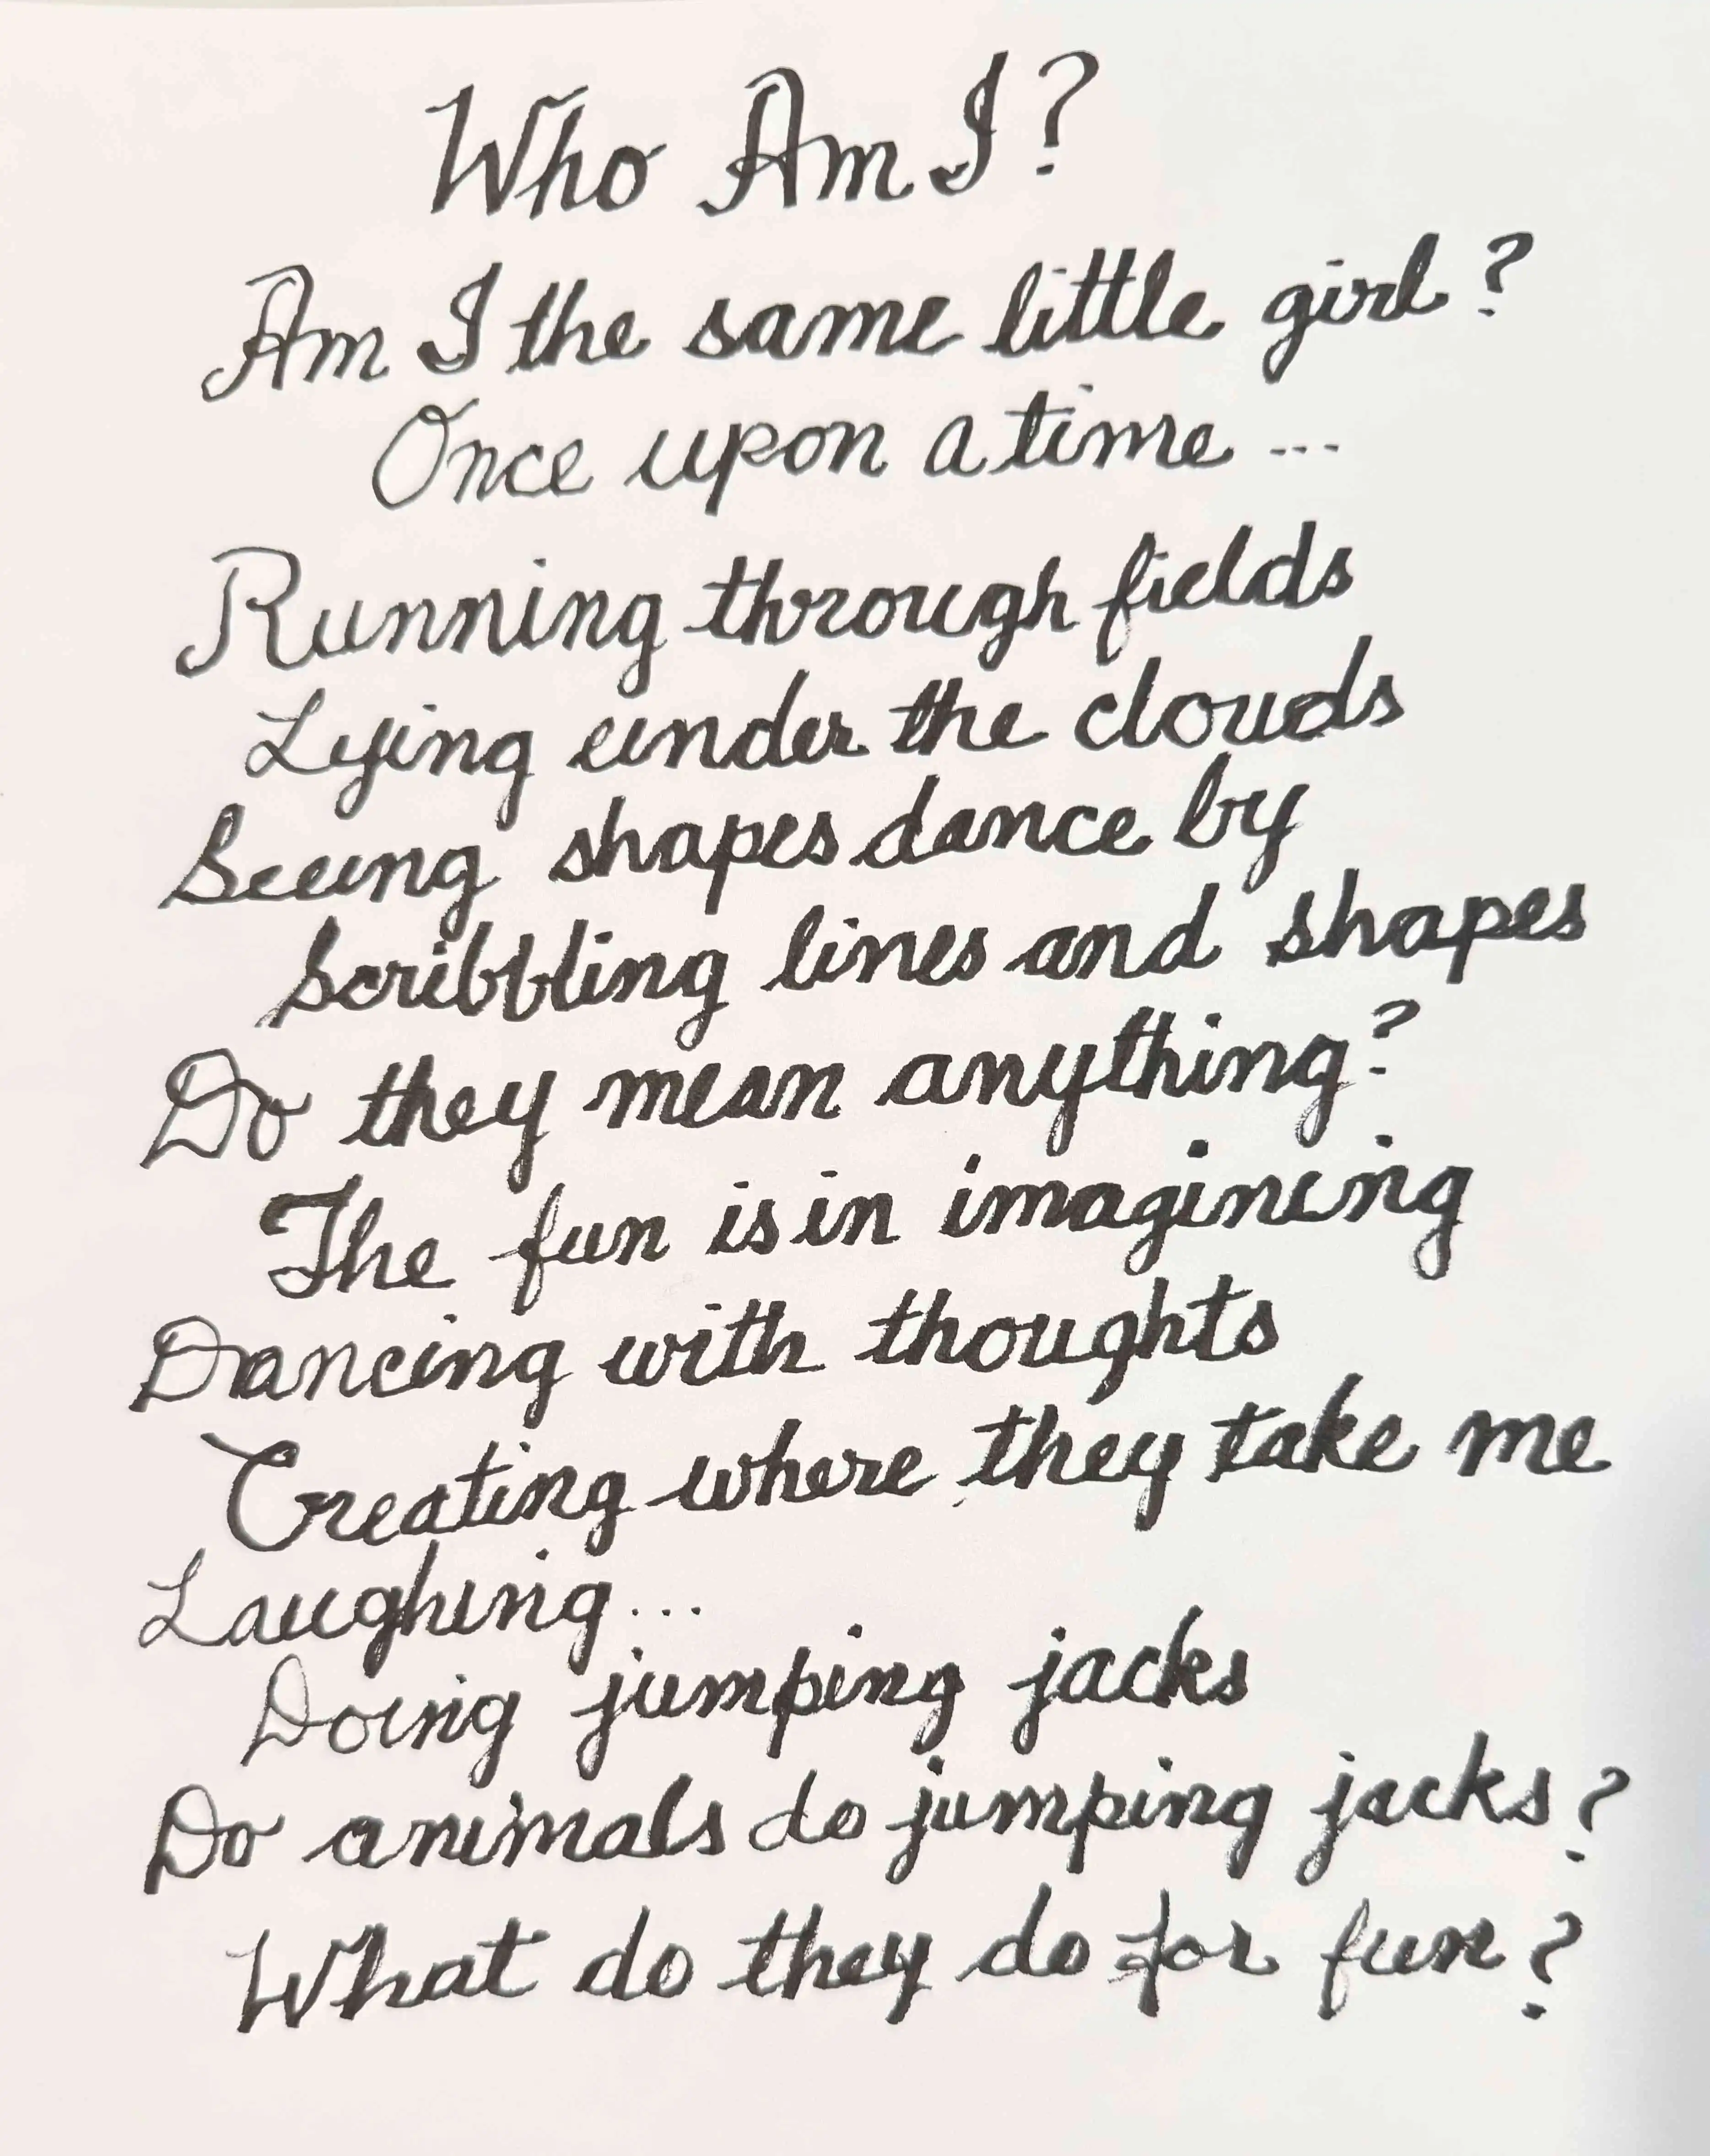 Who Am I?
Am I the same little girl?
Once upon a time...
Running through fields
Lying under the clouds
Seeing shapes dance by
Scribbling lines and shapes
Do they mean anything?
The fun is in imagining
Dancing with thoughts
Creating where they take me
Laughing...
Doing jumping jacks
Do animals do jumping jacks?
What do they do for fun?